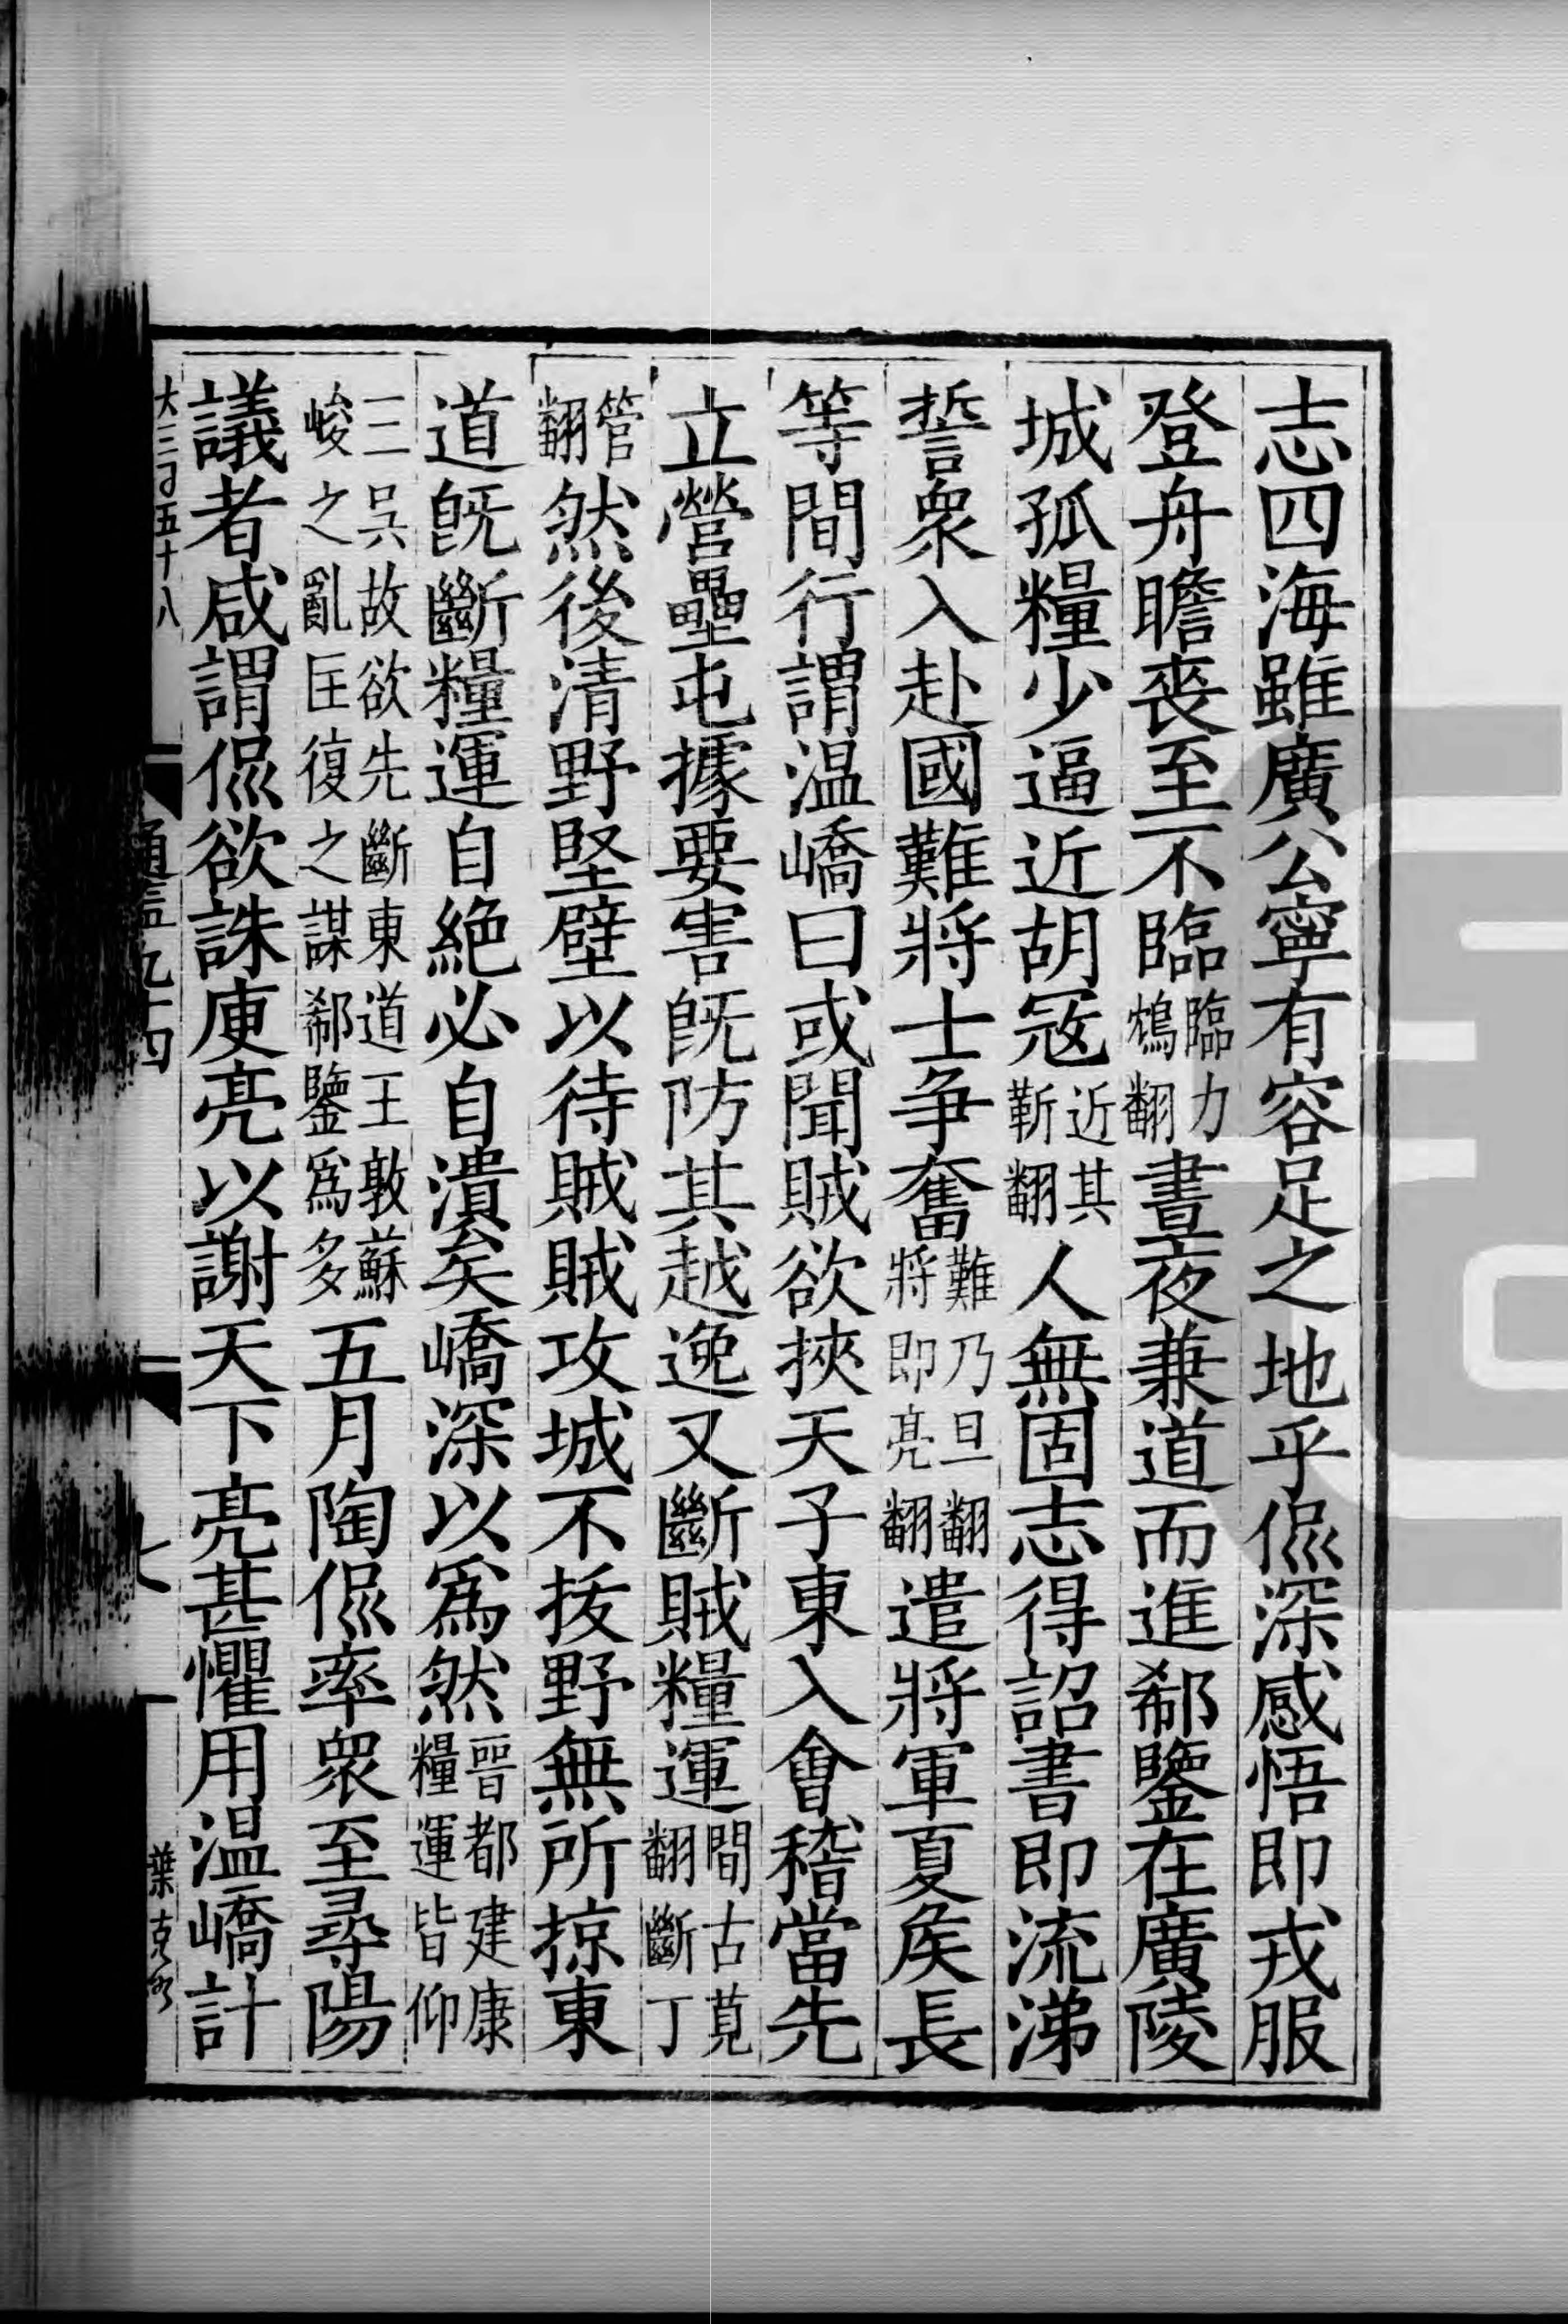 志四海雖廣公寧有容足之地乎侃深感悟即戎服
登舟瞻喪至不臨臨力鴆翻晝夜兼道而進郗鑒在廣陵
城孤糧少逼近胡寇近其靳翻人無固志得詔書即流涕
誓衆入赴國難將士争奮難乃旦翻將即亮翻遣將軍夏侯長
等間行謂温嶠曰或聞賊欲挾天子東入會稽當先
立營壘屯據要害既防其越逸又斷賊糧運間古莧翻斷丁
管翻然後清野堅壁以待賊賊攻城不拔野無所掠東
道既斷糧運自絶必自潰矣嶠深以為然晉都建康糧運皆仰
三吳故欲先斷東道王敦蘇峻之亂匡復之謀郗鑒爲多五月陶侃率衆至尋陽
議者咸謂侃欲誅庾亮以謝天下亮甚懼用温嶠計
大三百五十八
九十四
七